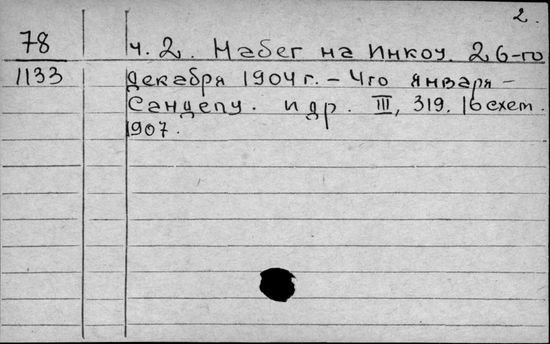 2.
78 ч. 2. Набег на Инкоу. 26-го
1133 декабря 1904 г. – 4го января –
Сандепу. и др. III, 319. 16 схем.
1907.